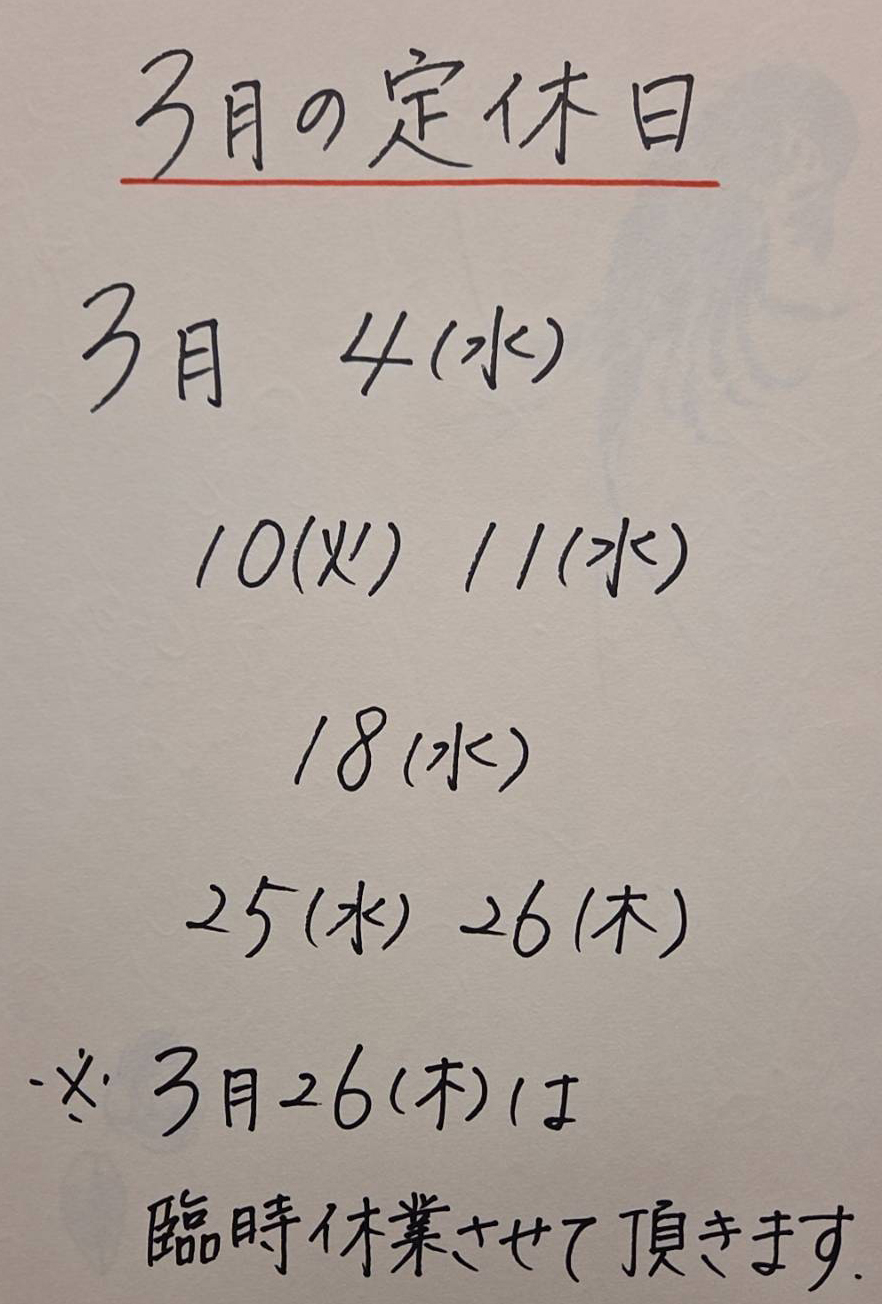 3月の定休日
3月 4(水)
10(火) 11(水)
18(水)
25(水) 26(木)
※ 3月26(木)は
臨時休業させて頂きます.